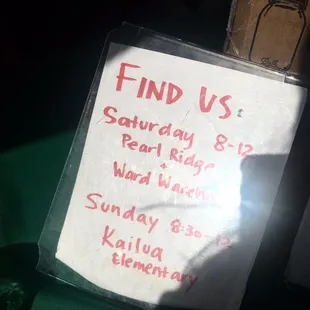 FIND US:
Saturday 8-12
Pearl Ridge
+
Ward
Sunday 8:30-12
Kailua
Elementary